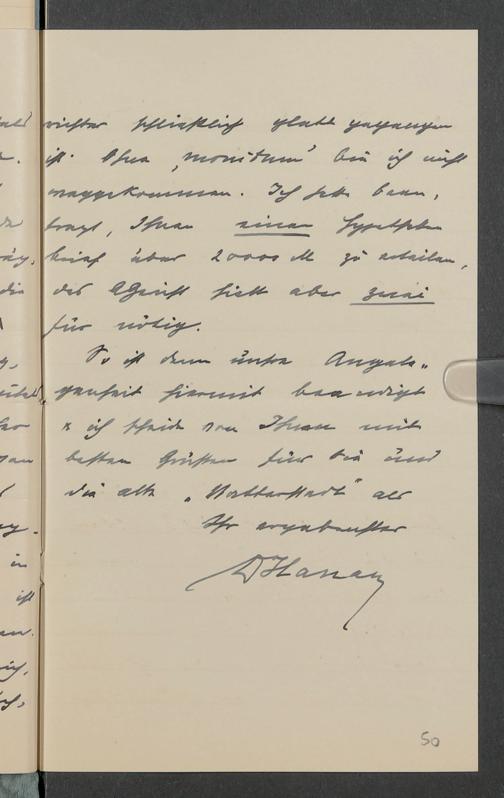 richter schließlich glatt gegangen
ist. Ohne „monitum“ bin ich nicht
weggekommen. Ich hatte bean„
tragt, Ihnen einen Hypotheken
brief über 20000 M zu erteilen,
das AGericht hielt aber zwei
für nötig.
So ist denn unsre Angele„
genheit hiermit beendigt
& ich scheide von Ihnen mit
besten Grüßen für Sie und
die alte als
Ihr ergebenster
50